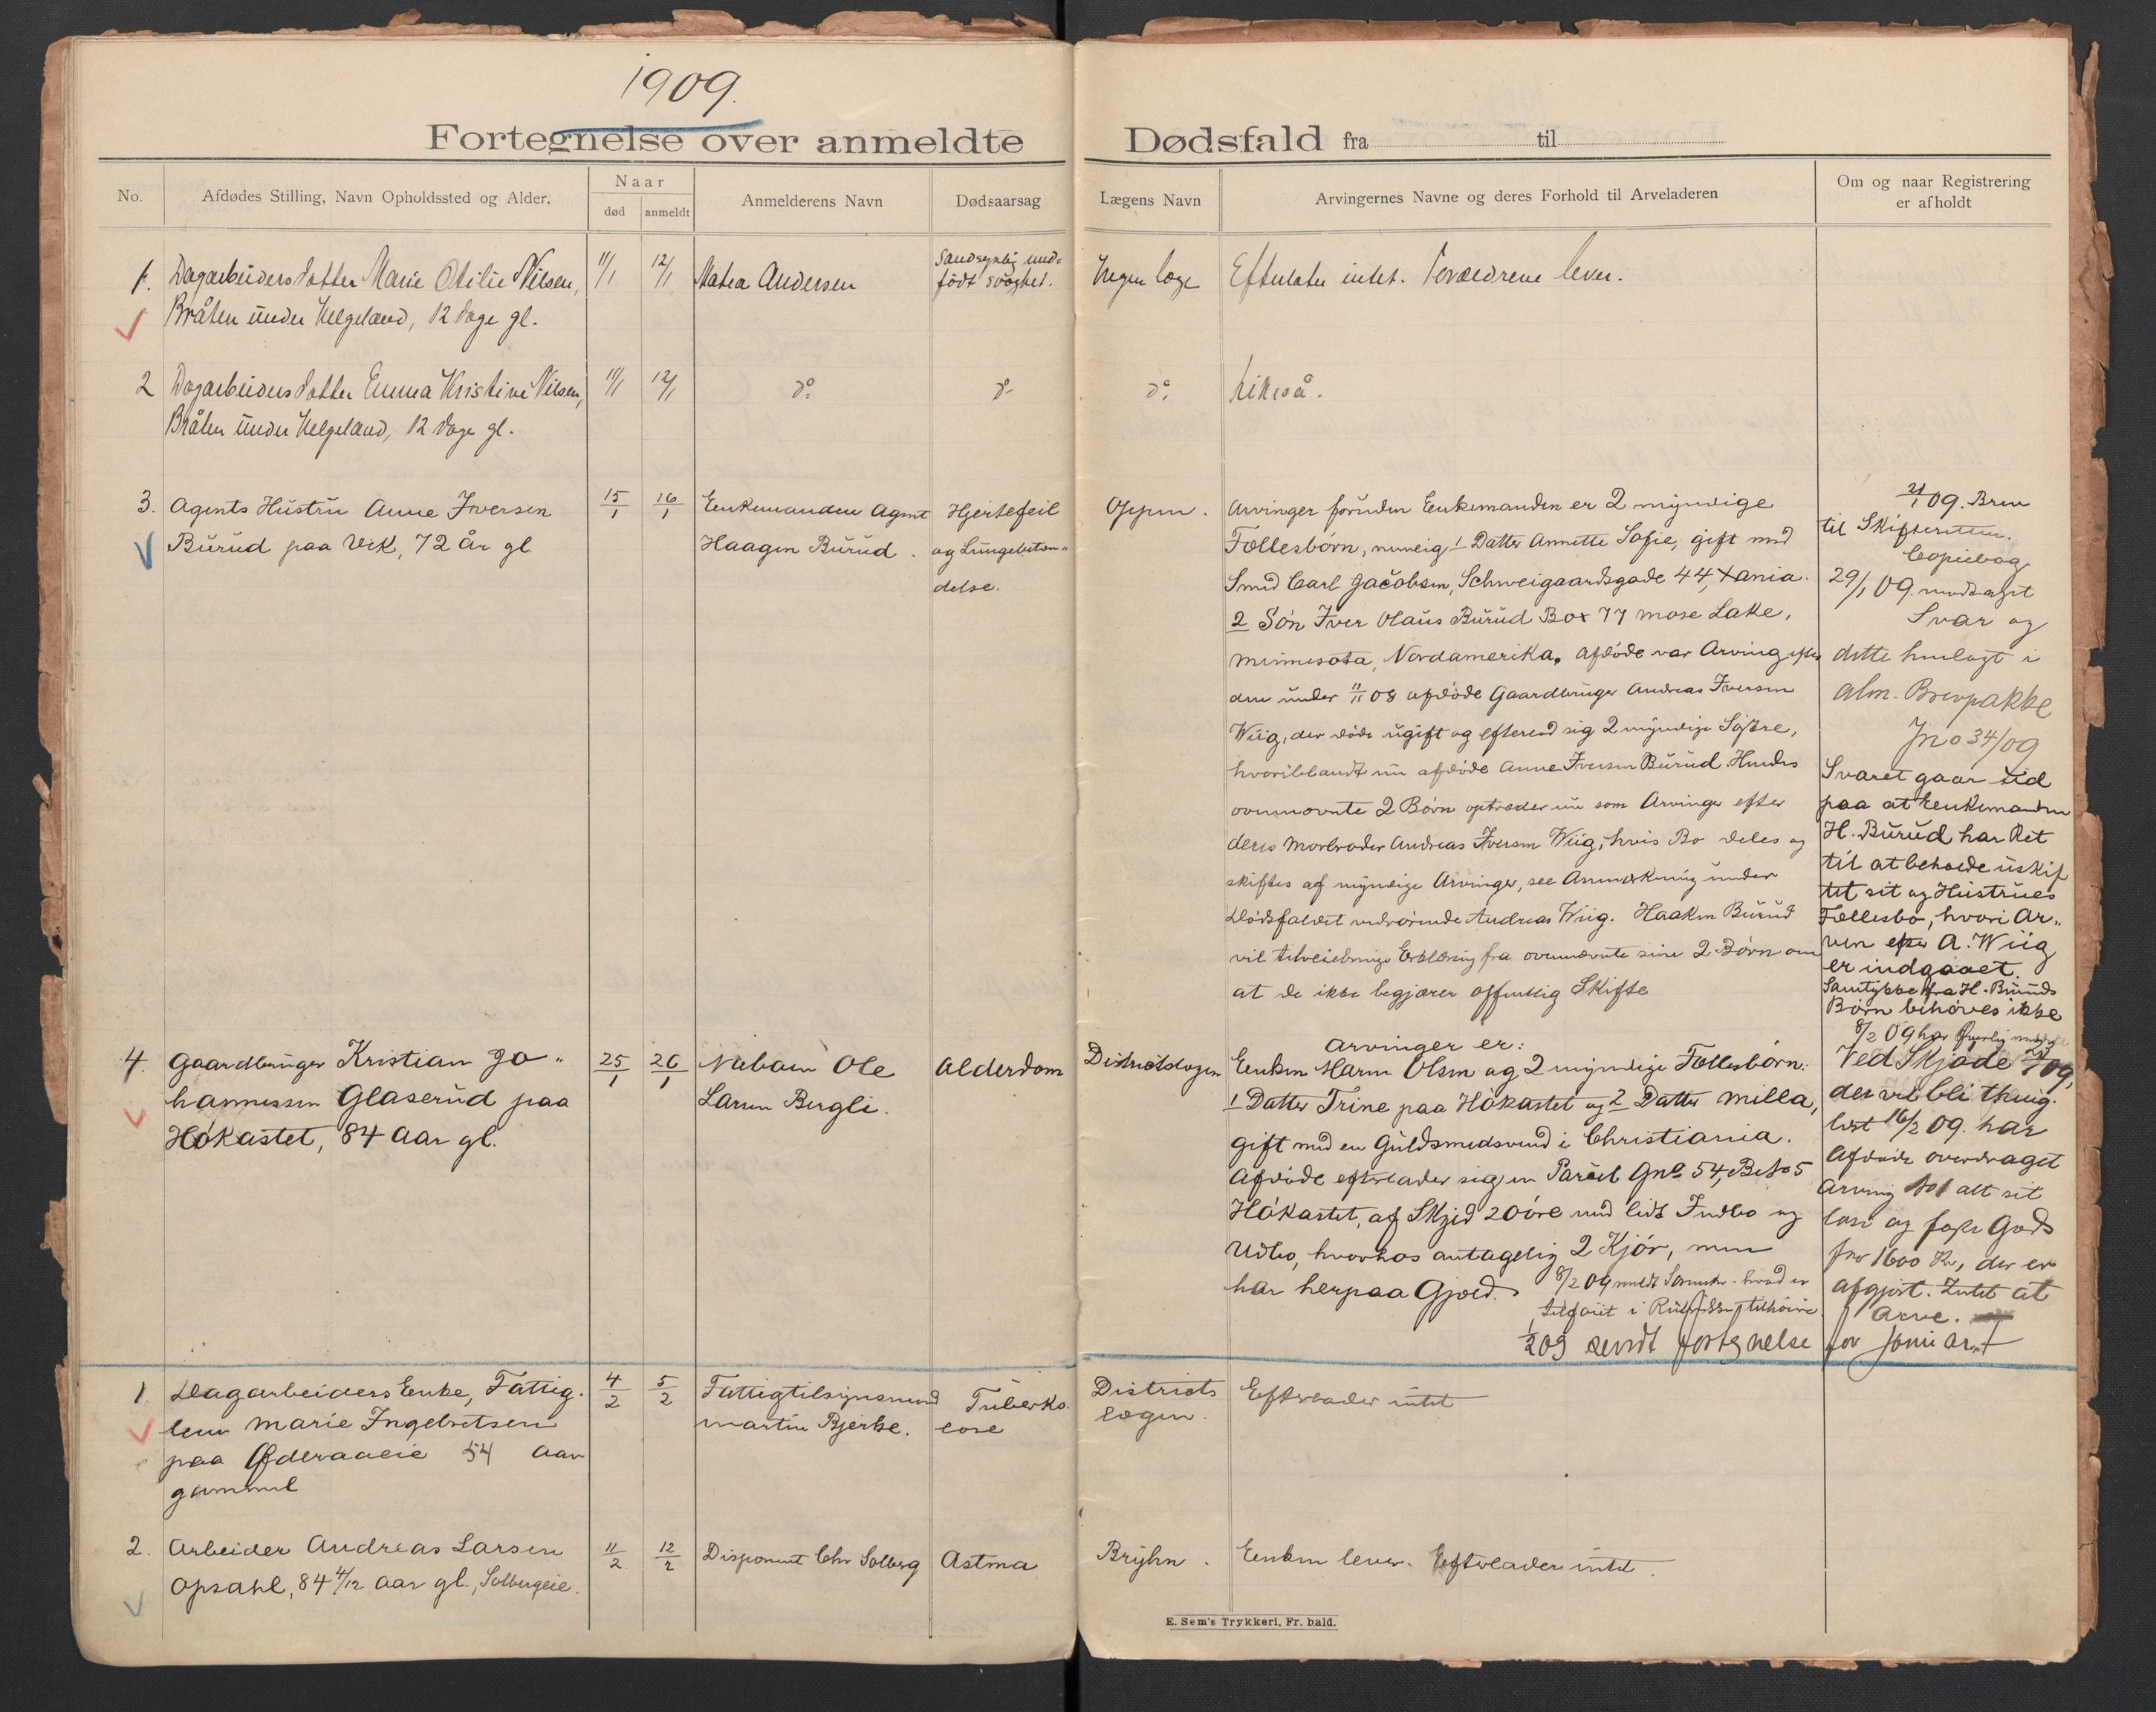 1909.
Fortegnelse over anmeldte Dødsfald fra til
No.
Afdødes Stilling, Navn Opholdssted og Alder.
Naar
død
anmeldt
Anmelderens Navn
Dødsaarsag
Lægens Navn
Arvingernes Navne og deres Forhold til Arveladeren
Om og naar Registrering
er afholdt
1.
Dagarbeiders datter Marie Otilie Nilsen,
Bråten under Helgeland, 12 dage gl.
11/1
12/1
Matea Andersen
Sandsynlig med=
född svaghet.
Ingen læge
Efterlater intet. Forældrene lever.
2
Dagarbeiders datter Emma Kristine Nilsen,
Bråten under Helgeland, 12 dage gl.
11/1
12/1
do
do
do
Likeså.
3.
Agents Hustru Anne Iversen
Burud paa Vik, 72 År gl
15/1
16/1
Enkemanden Agent
Haagen Burud.
Hjertefeil
og Lungebetæn„
delse.
Oppen.
Arvinger foruden Enkemanden er 2 myndige
Fællesbörn, nemlig 1 Datter Annette Sofie, gift med
Smed Carl Jacobsen, Schweigaardsgade 44, Xania.
2 Sön Iver Olaus Burud Box 77 Mose Lake,
Minnesota, Nordamerika. Afdöde var Arving efter
den under 11/11 08 afdöde Gaardbruger Andreas Iversen
Wiig, der döde ugift og efterlod sig 2 myndige Söstre,
hvoriblandt nu afdöde Anne Iversen Burud. Hendes
ovennævnte 2 Börn optræder nu som Arvinger efter
deres Morbroder Andreas Iversen Wiig, hvis Bo deles og
skiftes af myndige Arvinger, see Anmærkning under
Dödsfaldet vedrörende Andreas Wiig. Haaken Burud
vil tilveiebringe Erklæring fra ovennævnte sine 2 Börn om
at de ikke begjærer offentlig Skifte
21/1 09. Brev
til Skifteretten.
Copiebog
29/1 09. modtaget
Svar og
dette henlagt i
alm. Brevpakke
Jno 34/09
Svaret gaar ud
paa at Enkemanden
H. Burud har Ret
til at beholde uskif
tet sit og Hustrues
Fællesbo, hvori Ar„
ven efter A. Wiig
er indgaaet.
Samtykke fra H. Buruds
Börn behöves ikke
4.
Gaardbruger Kristian Jo„
hannessen Glaserud paa
Hökastet, 84 Aar gl.
25/1
26/1
Naboen Ole
Larsen Bergli.
Alderdom
Districtslægen
Arvinger er:
Enken Maren Olsen og 2 myndige Fællesbörn:
1 Datter Trine paa Hökastet og 2 Datter Milla,
gift med en Guldsmedsvend i Christiania.
Afdöde efterlader sig en Parcel Gno 54, Bno 5
Hökastet, af Skyld 20 öre med lidt Indbo og
Udbo, hvorhos antagelig 2 Kjör, men
har herpaa Gjæld.
8/2 09 har
Ved Skjöde
der vil bli thing.
læst 16/2 09. har
Afdöde overdraget
Arving alt sit
löse og faste Gods
for 1600 Kr, der er
afgjort. Intet at
Arve.
1/2 09 sendt fortegnelse for januar.
1.
Dagarbeiders Enke, Fattig.
lem Marie Ingebretsen
paa Øderaaeie 54 Aar
gammel
4/2
5/2
Fattigtilsynsmand
Martin Bjerke.
Tuberko.
lose
Districts
lægen.
Efterlader intet
2.
Arbeider Andreas Larsen
Opsahl, 84 4/12 Aar gl., Solbergeie.
11/2
12/2
Disponent Chr Solberg
Astma
Bryhn.
Enken lever. Efterlader intet.
E. Sem's Trykkeri, Fr. hald.